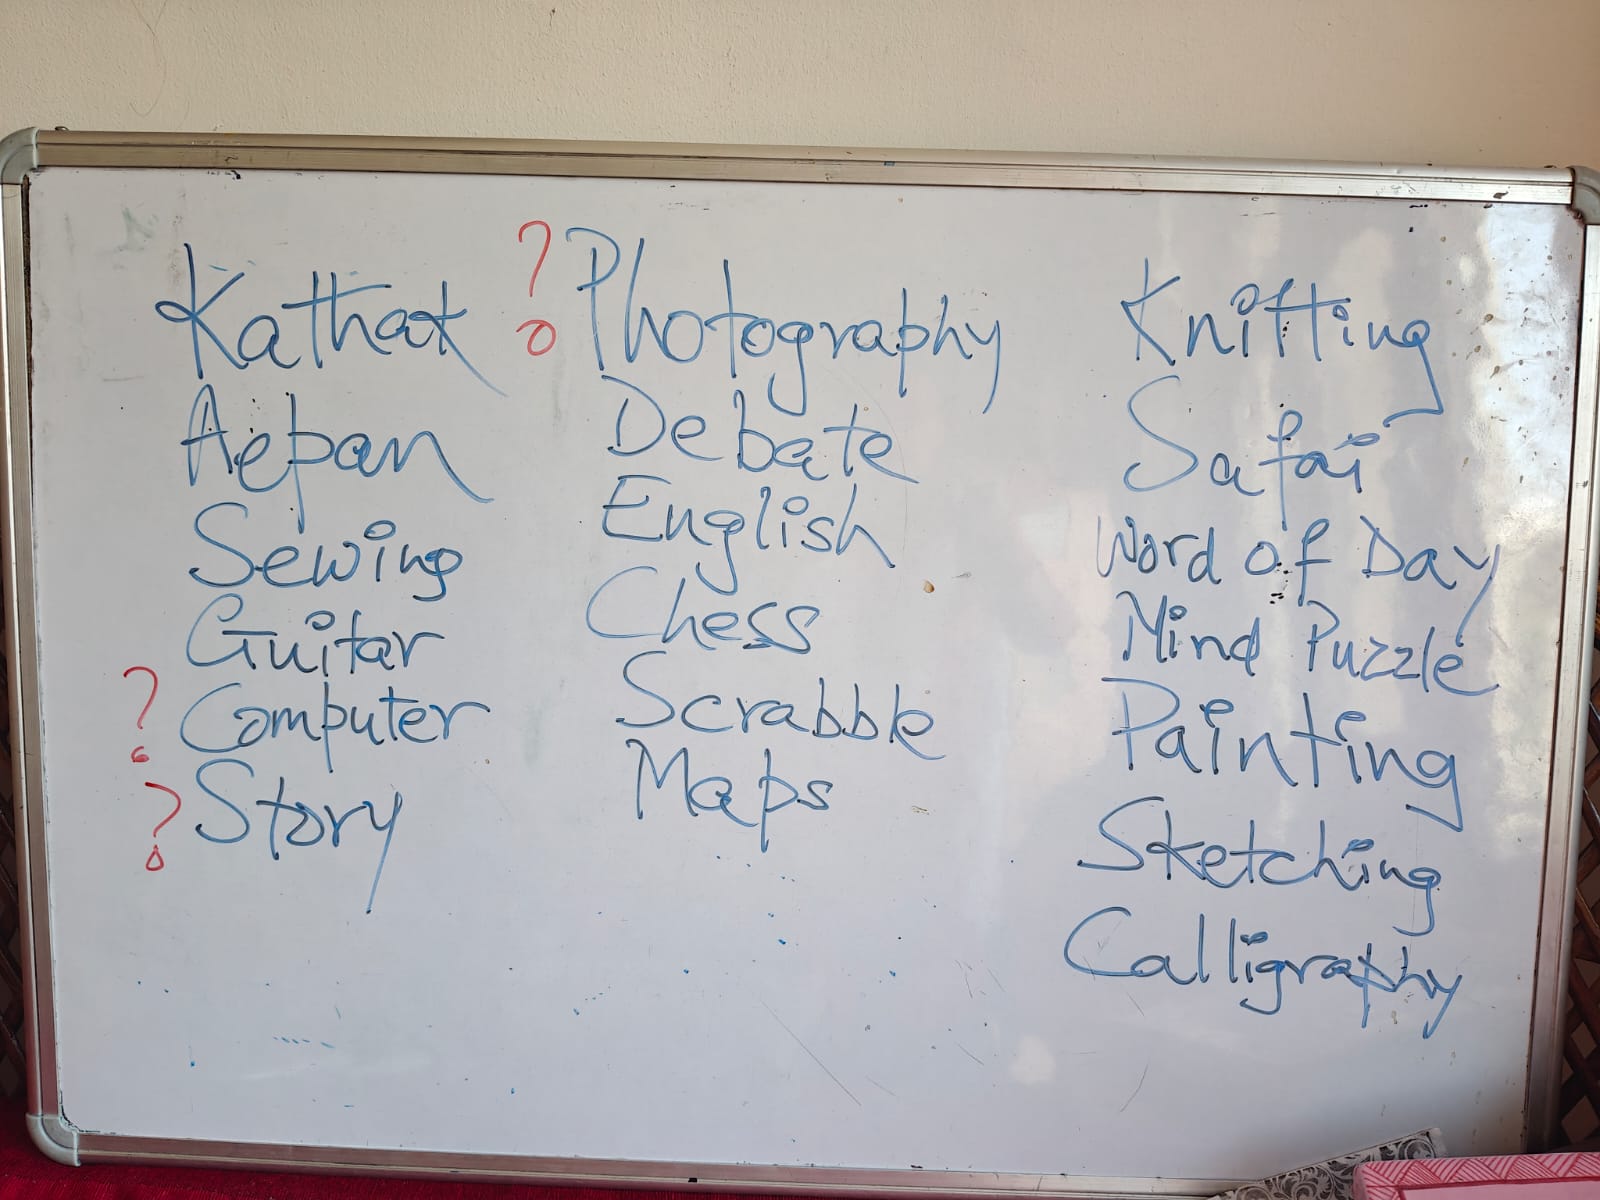 Kathak
Aepan
Sewing
Guitar
? Computer
? Story
? Photography
Debate
English
Chess
Scrabble
Maps
Knitting
Safai
Word of Day
Mind Puzzle
Painting
Sketching
Calligraphy